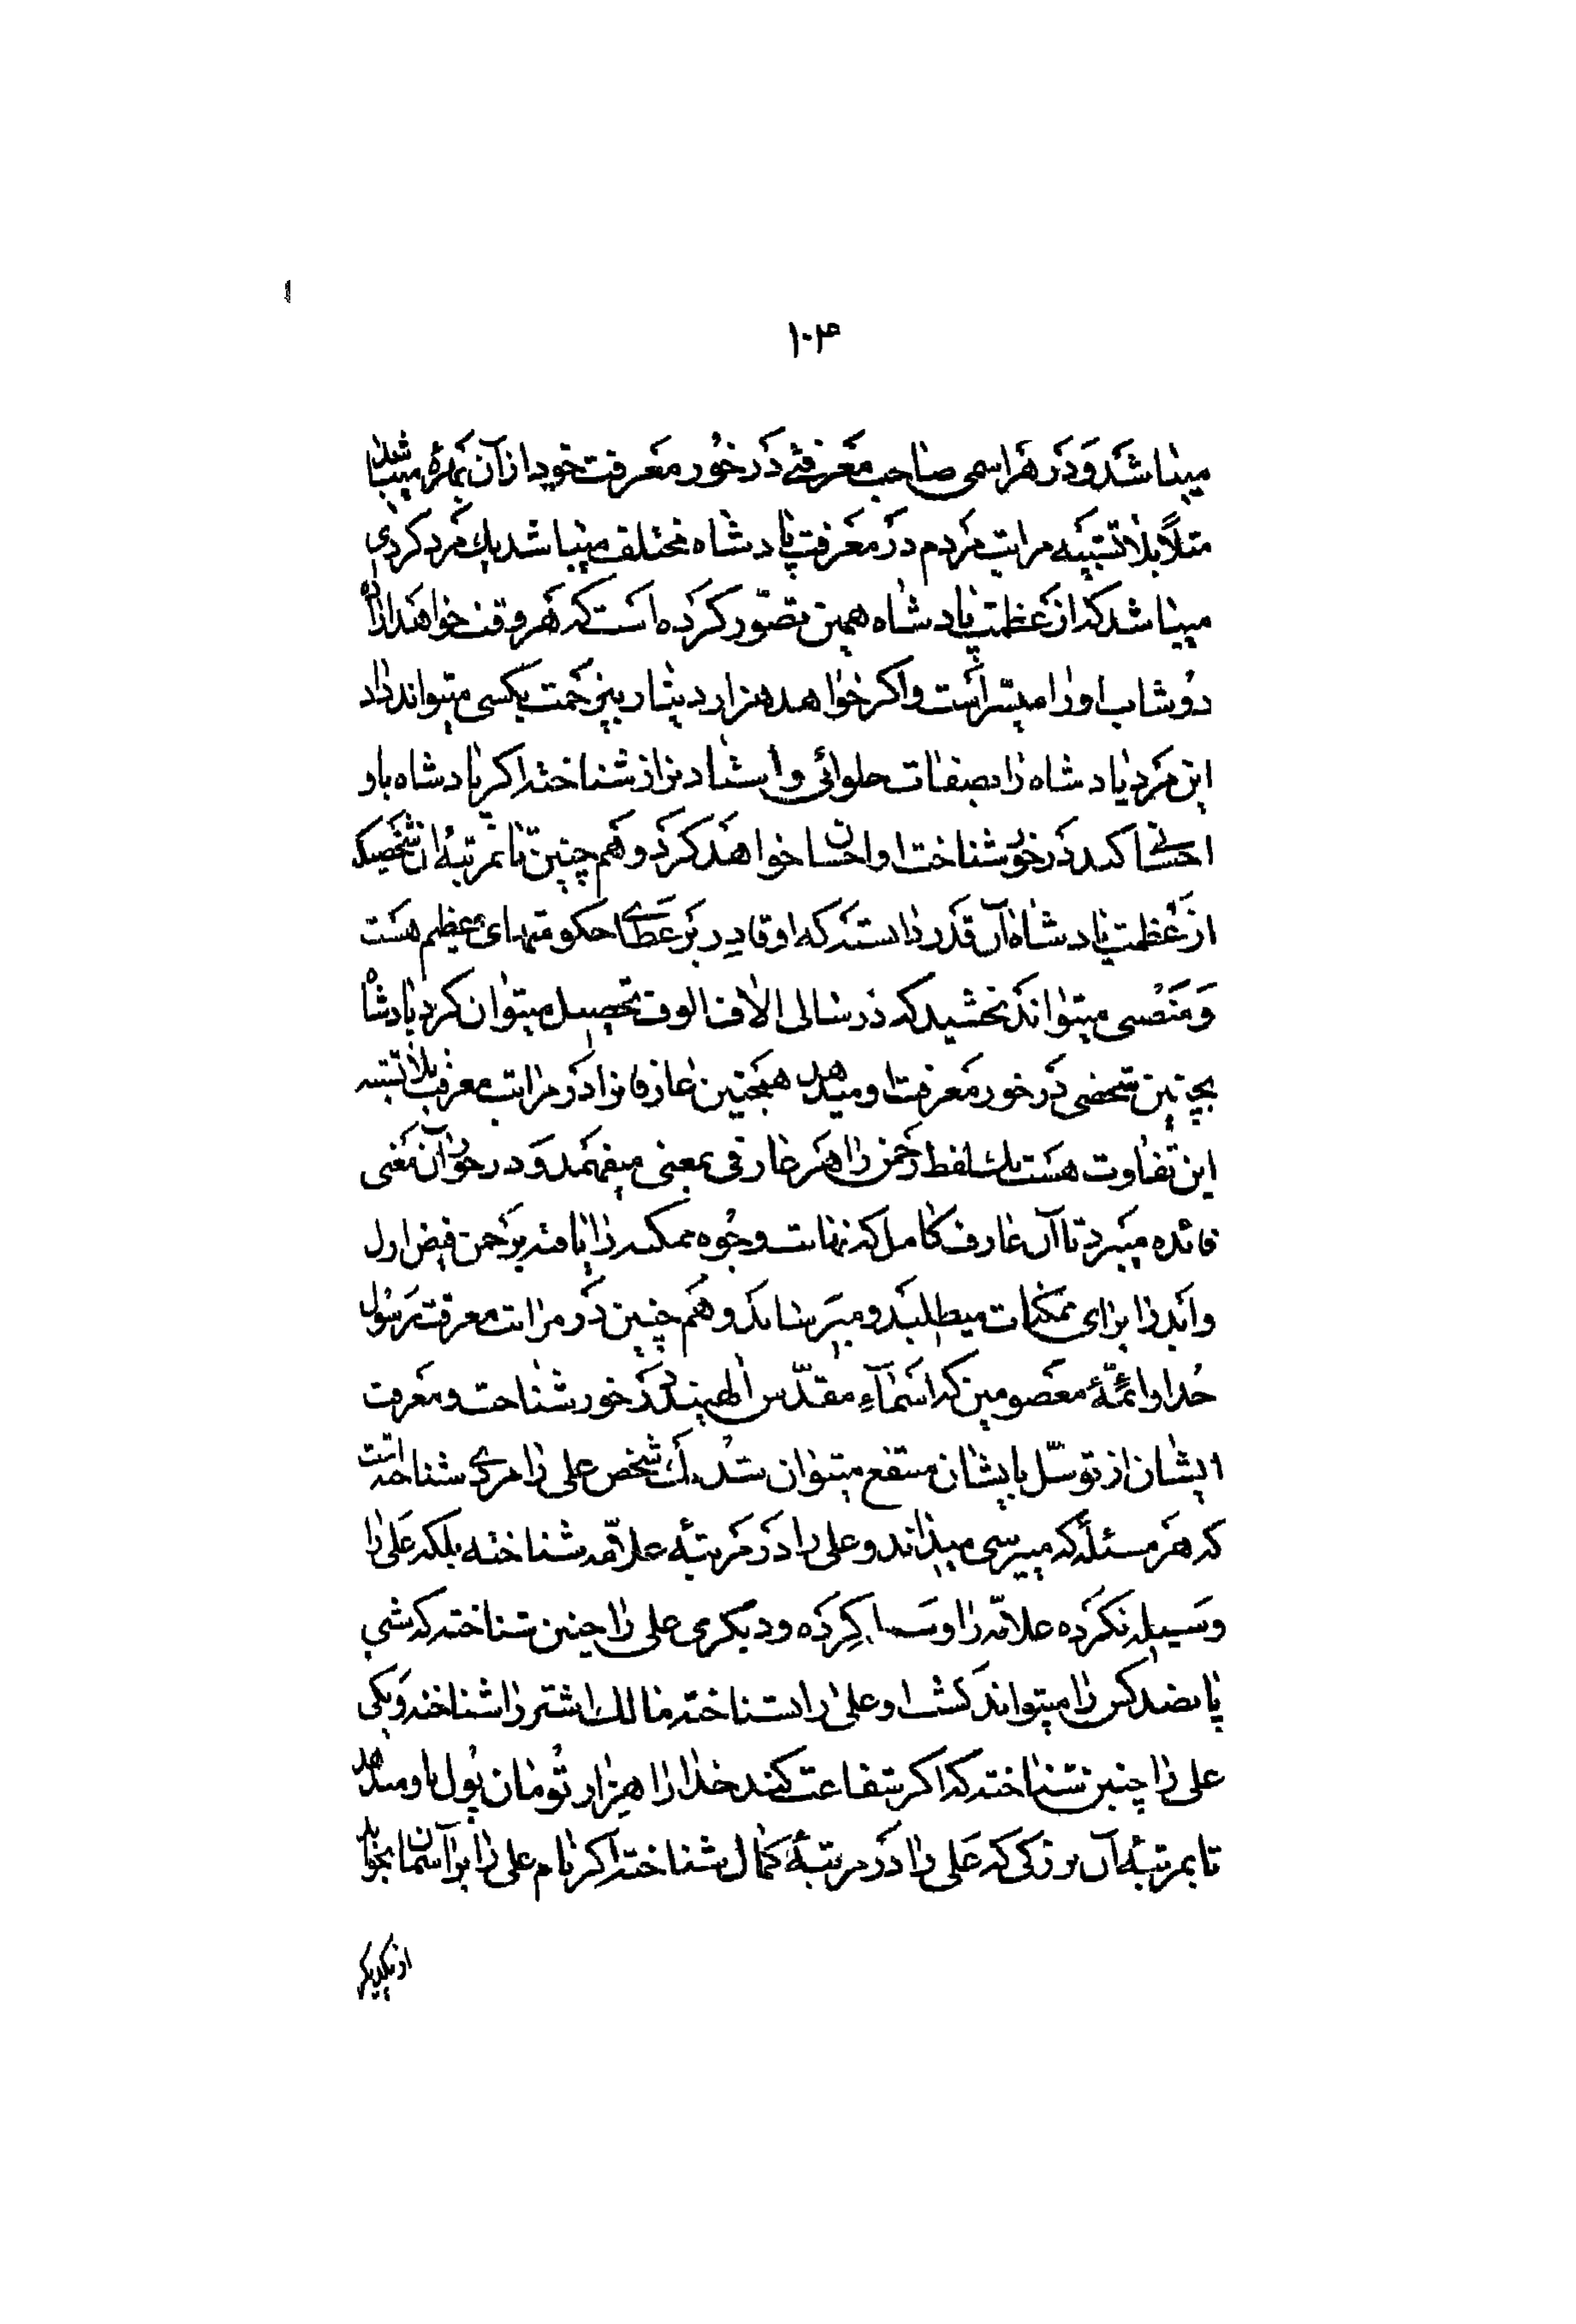 ۱۰۴
میباشد و در هر اسمی صاحب معرفتی در خور معرفت خود از آن بهره میباشد
مثلاً بلا تشبیه مراتب مردم در معرفت پادشاه مختلف میباشد یك مرد کردی
میباشد که از عظمت پادشاه همین تصوّر کرده است که هر وقت خواهد اراده
دوشاب او را میسّر است و اکر خواهد هزار دینار بیزحمت بکسی میتواند داد
این مرد پادشاه را بصفات حلوائی و استاد بزاز شناخته اکر پادشاه باو
احسانی کند در خور شناخت او احسان خواهد کرد و هم چنین تا بمرتبۀ آن شخصیکه
از عظمت پادشاه آن قدر دانسته که او قادر بر عطای حکومتهای عظیم هست
و منصبی میتواند بخشید که در سالی الاف الوف تحصیل میتوان کرد پادشاه
بچنین شخصی در خور معرفت او میدهد همچنین عارفانرا در مراتب معرفت بلا تشبیه
این تفاوت هست یك لفظ رحمن را هر عارفی بمعنی میفهمد و در خور آن معنی
فائده میبرد تا آن عارف کامل که نهایت وجوه ممکنه را یافته بر حمن فیض اول
و ابد را برای ممکنات میطلبد و میرساند و هم چنین در مراتب معرفت رسول
خدا و ائمّۀ معصومین که اسمآء مقدّس الهیند در خور شناخت و معرفت
ایشان از توسّل بایشان منتفع میتوان شد یك شخص علی را مردی شناخته است
که هر مسئله که میپرسی میداند و علی را در مرتبۀ علامّه شناخته بلکه علی را
وسیله نکرده علامّه را وسیله کرده و دیکری علی را چنین شناخته که شبی
پانصد کس را میتواند کشت او علی را نشناخته مالك اشتر را شناخته و یکی
علی را چنین شناخته که اکر شفاعت کند خدا را هزار تومان پول باو میدهد
تا بمرتبۀ آن بزرکی که علی را در مرتبۀ کمال شناخته اکر نام علی را بر آسمان بخواند